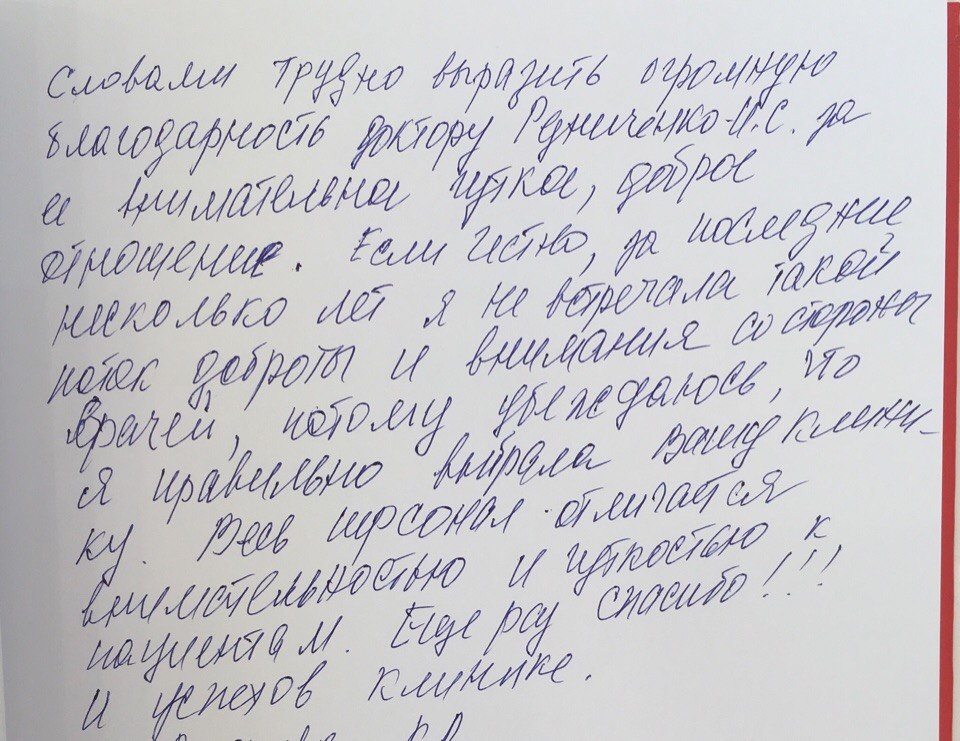 Словами трудно выразить огромную
благодарность доктору Редниченко И.С. за
ее внимательное чуткое, доброе
отношение. Если честно, за последние
несколько лет я не встречала такой
поток доброты и внимания со стороны
врачей, потому убеждаюсь, что
я правильно выбрала Вашу клини-
ку. Весь персонал отличается
внимательностью и чуткостью к
пациентам. Еще раз спасибо!!!
И успехов клинике.